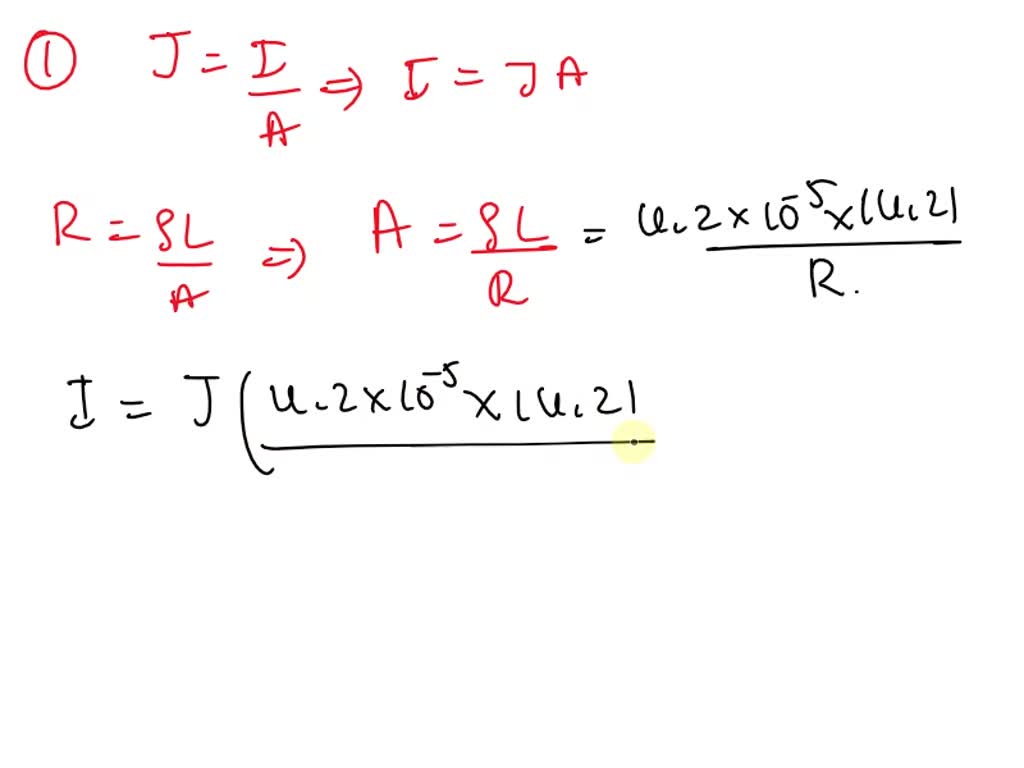 ① J = I/A ⇒ I = J A
R = ρL/A ⇒ A = ρL/R = 4.2 × 10⁻⁵ × 14.21/R.
I = J ( 4.2 × 10⁻⁵ × 14.21